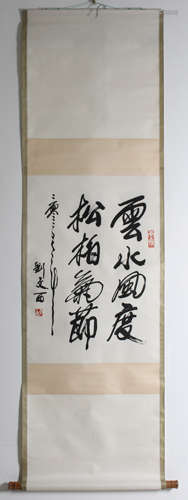 雲水風度
松柏氣節
劉文西